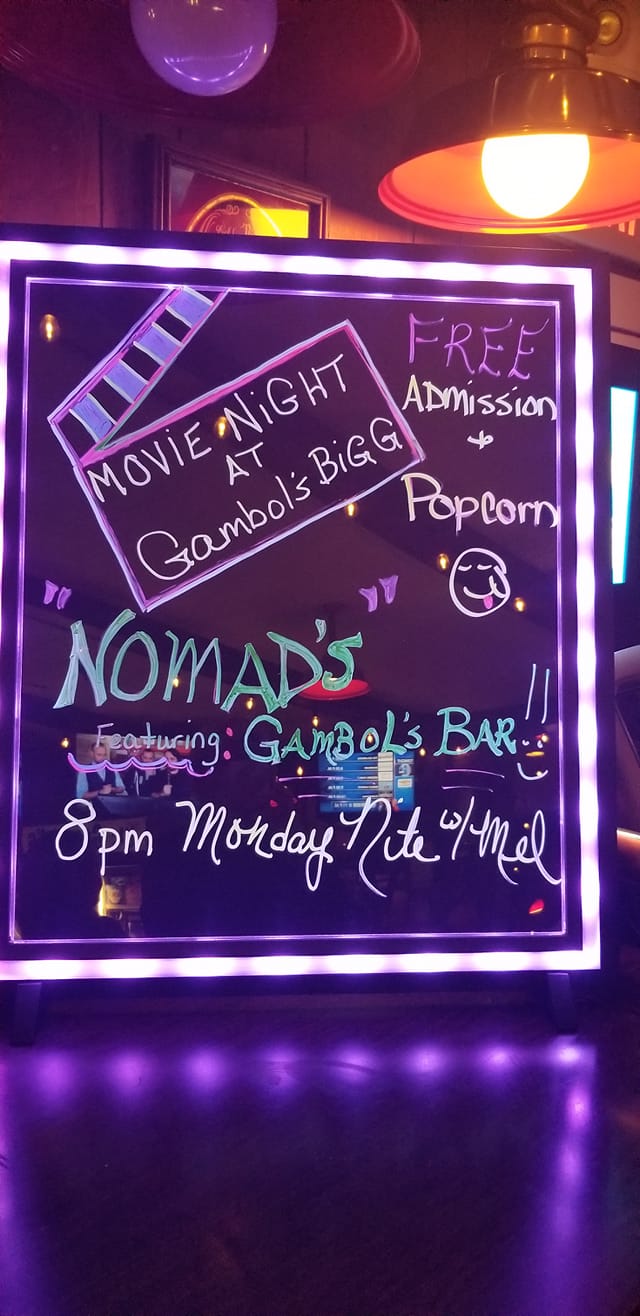 MOVIE NiGHT
AT
Gambol's BiGG
FREE
ADmission
+
Popcorn
"NOMAD'S"
Featuring: GAMBOL'S BAR!!
8pm Monday Nite w/ Mel